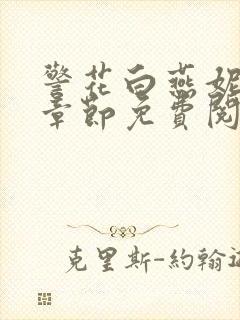 警花白燕妮
章節免費閱
克里斯-約翰遜